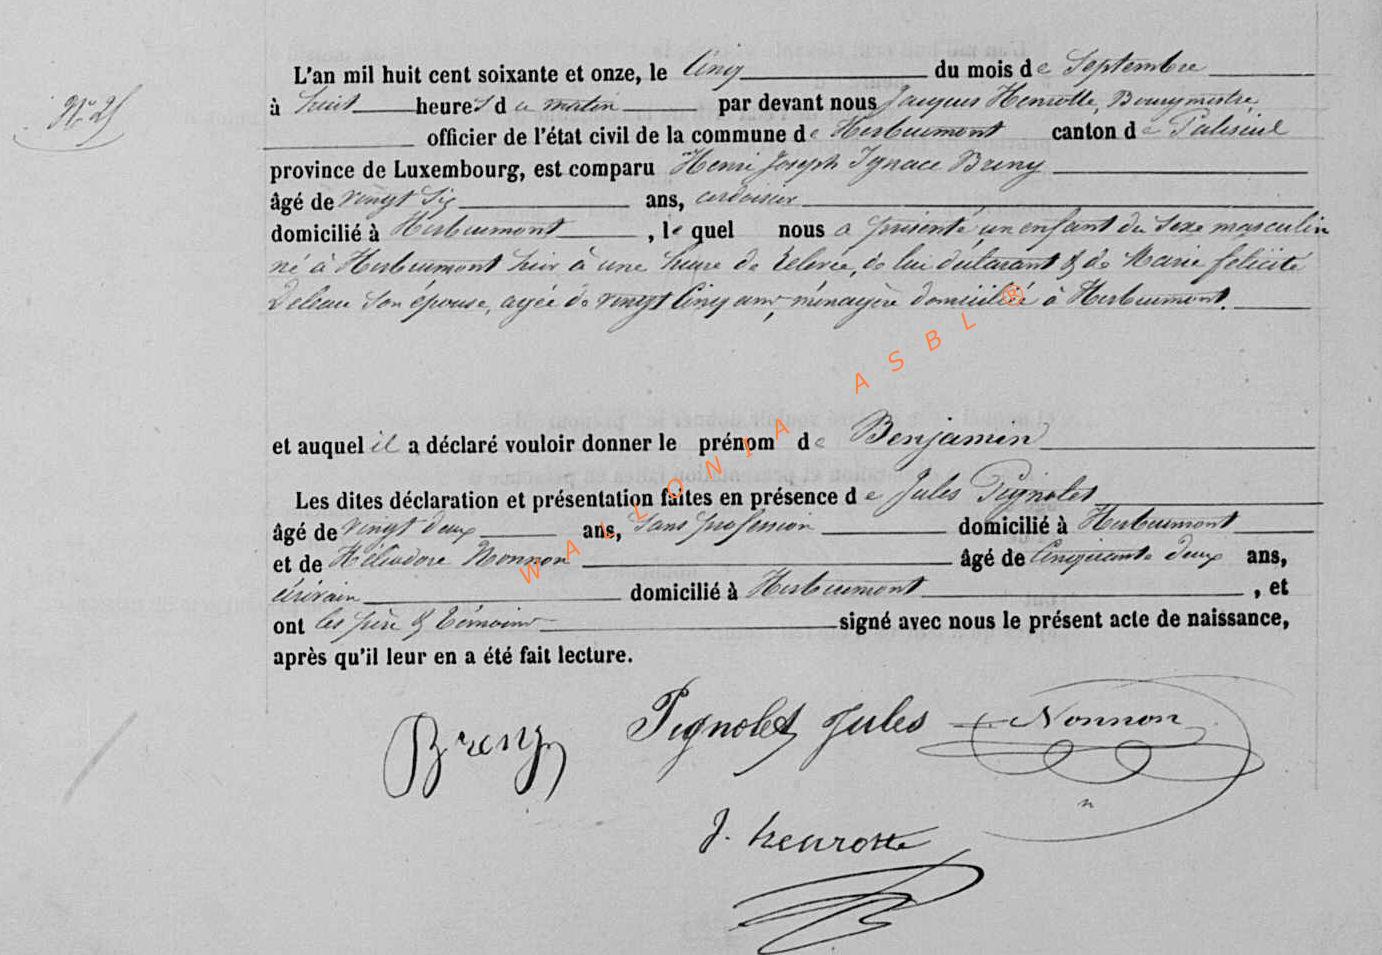 N° 25
L'an mil huit cent soixante et onze, le Cinq du mois de Septembre
à huit heures du matin par devant nous Jacques Henrotte, Bourgmestre,
officier de l'état civil de la commune de Herbeumont canton de Paliseul
province de Luxembourg, est comparu Henri Joseph Ignace Breny
âgé de vingt six ans, ardoisier
domicilié à Herbeumont, le quel nous a présenté un enfant du sexe masculin
né à Herbeumont hier à une heure de relevée, de lui déclarant & de Marie félicité
son épouse, agée de vingt Cinq ans, ménagère domiciliée à Herbeumont.
et auquel il a déclaré vouloir donner le prénom de Benjamin
Les dites déclaration et présentation faites en présence de Jules Pignolet
âgé de vingt deux ans, Sans profession domicilié à Herbeumont
et de Héliodore Nonnon âgé de Cinquante deux ans,
écrivain domicilié à Herbeumont, et
ont les père & témoins signé avec nous le présent acte de naissance,
après qu'il leur en a été fait lecture.
Breny Pignolet Jules Nonnon
J. henrotte
WALLONIA ASBL ®